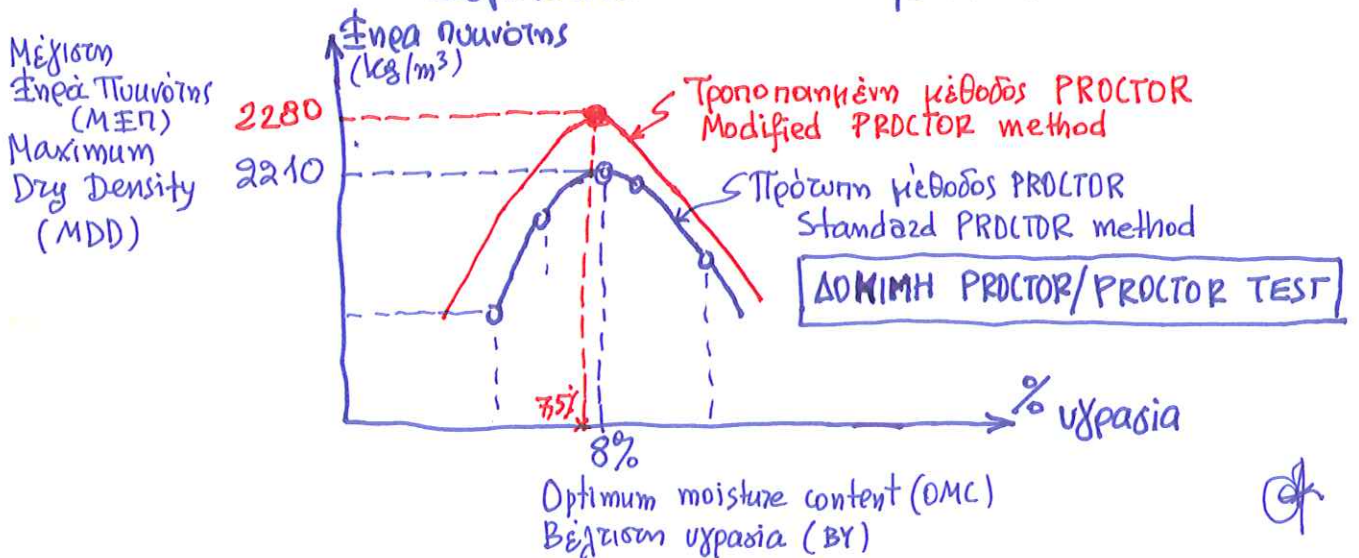 Ξηρα πυκνότης
(kg/m³)
Μέγιστη
Ξηρά Πυκνότης
(ΜΞΠ)
Maximum
Dry Density
(MDD)
2280
2210
Τροποποιημένη μέθοδος PROCTOR
Modified PROCTOR method
Πρότυπη μέθοδος PROCTOR
Standard PROCTOR method
ΔΟΚΙΜΗ PROCTOR/PROCTOR TEST
7,5%
8%
% υγρασία
Optimum moisture content (OMC)
Βέλτιστη υγρασία (ΒΥ)